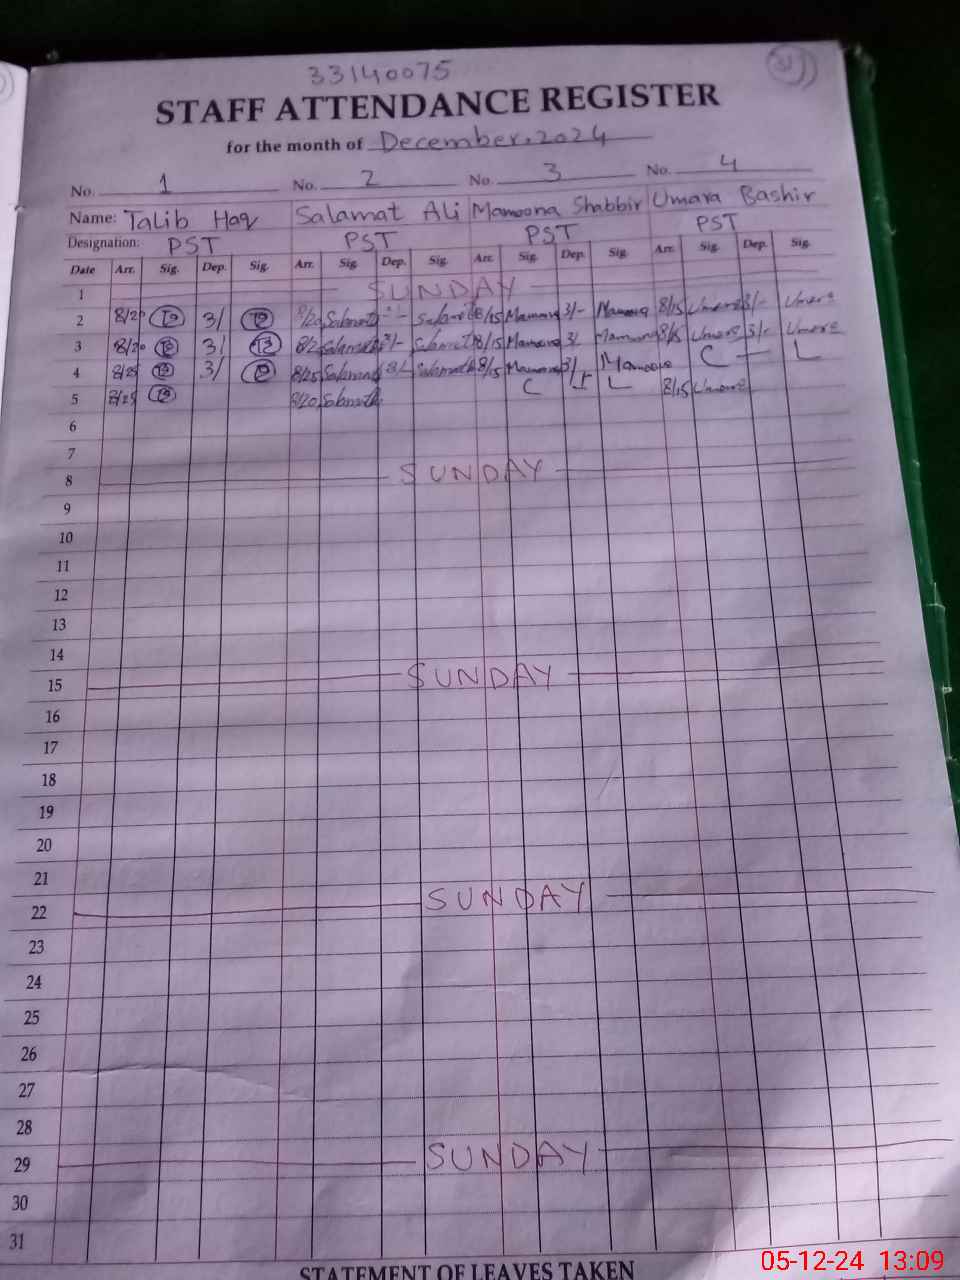 33140075
31
STAFF ATTENDANCE REGISTER
for the month of December, 2024
No. 1 No. 2 No. 3 No. 4
Name: Talib Haq Salamat Ali Mamoona Shabbir Umara Bashir
Designation: PST PST PST PST
Date Arr. Sig. Dep. Sig. Arr. Sig. Dep. Sig. Arr. Sig. Dep. Sig. Arr. Sig. Dep. Sig.
1 SUNDAY
2 8/20 3/ 8/20 Salamat 8/15 Mamoona 3/- Mamoona 8/15 Umara 3/- Umara
3 8/20 3/ Salamat 3/- Salamat 8/15 Mamoona 3/ Mamoona 8/15 Umara 3/- Umara
4 8/25 3/ 8/25 Salamat 3/- Salamat 8/15 Mamoona 3/ Mamoona C — L
5 8/25 8/20 Salamat C L 8/15 Umara
6
7
8 SUNDAY
9
10
11
12
13
14
15 SUNDAY
16
17
18
19
20
21
22 SUNDAY
23
24
25
26
27
28
29 SUNDAY
30
31
STATEMENT OF LEAVES TAKEN
05-12-24 13:09